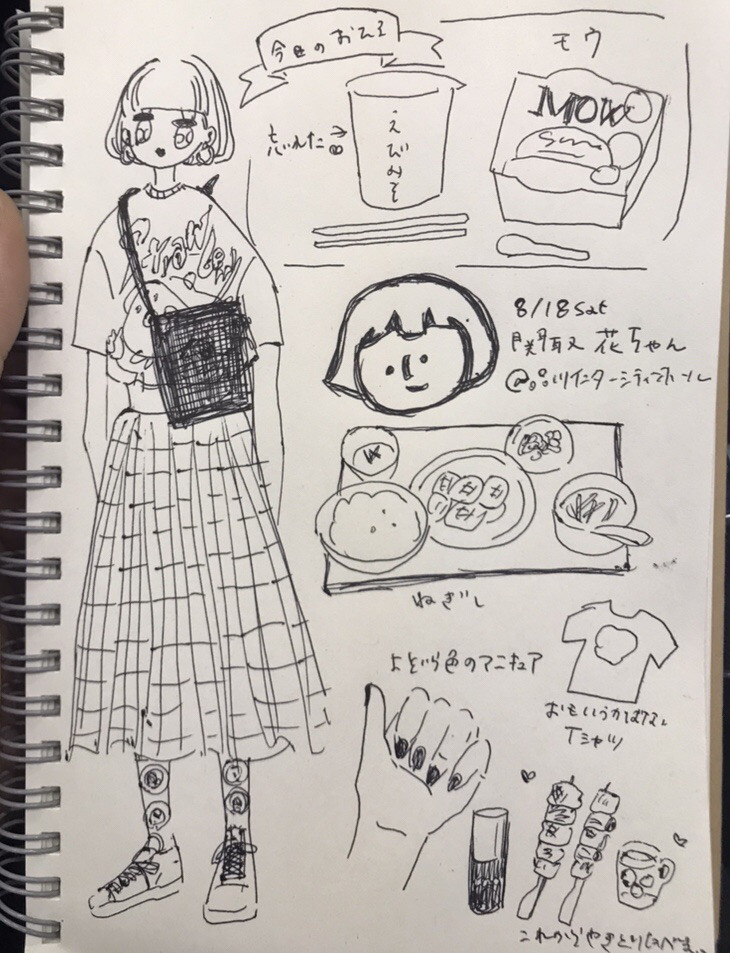 今日のおひる
モウ
忘れた→
えびみそ
MOW
8/18 sat
関取 花ちゃん
@品川インターシティホール
ねぎし
よどいろ色のマニキュア
おもいうかばない
Tシャツ
これからやきとりたべます